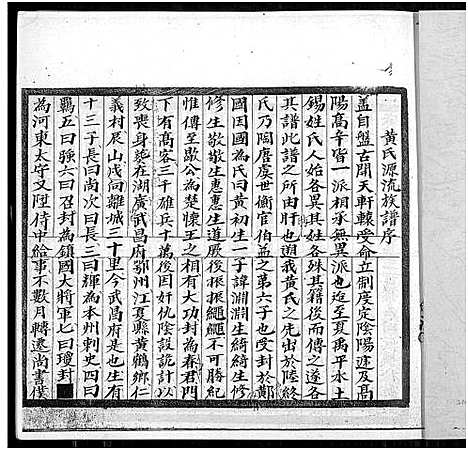 黃氏源流族譜序
蓋自盤古開天軒轅受命立制度定陰陽建及高
陽高辛皆一派相承無異派也迨至夏禹平水土
錫姓氏人始各異其姓各殊其籍後而傳之遂各
其譜此譜之所由肝也遡我黃氏之先出於陸終
氏乃陶唐虞世衛官伯益之第六子也受封於鄖
國因國為氏曰黃初生一子諱淵淵生綺綺生修
修生敬敬生惠惠生道厥後振振繩繩不可勝紀
惟傳至歇公為楚懷王之相有大功封為春君門
下有高客三千雄兵十萬後因奸仇陰設詭計以
致喪身塟在湖廣武昌府鄂州江夏縣黃鶴鄉仁
義村辰山戌向離城三十里今武昌府是也生有
十三子長曰尚次曰長三曰輝為本州刺史四曰
羈五曰強六曰召封為鎮國大將軍七曰瓊封
為河東太守又陞侍中給事不數月轉遷尚書僕